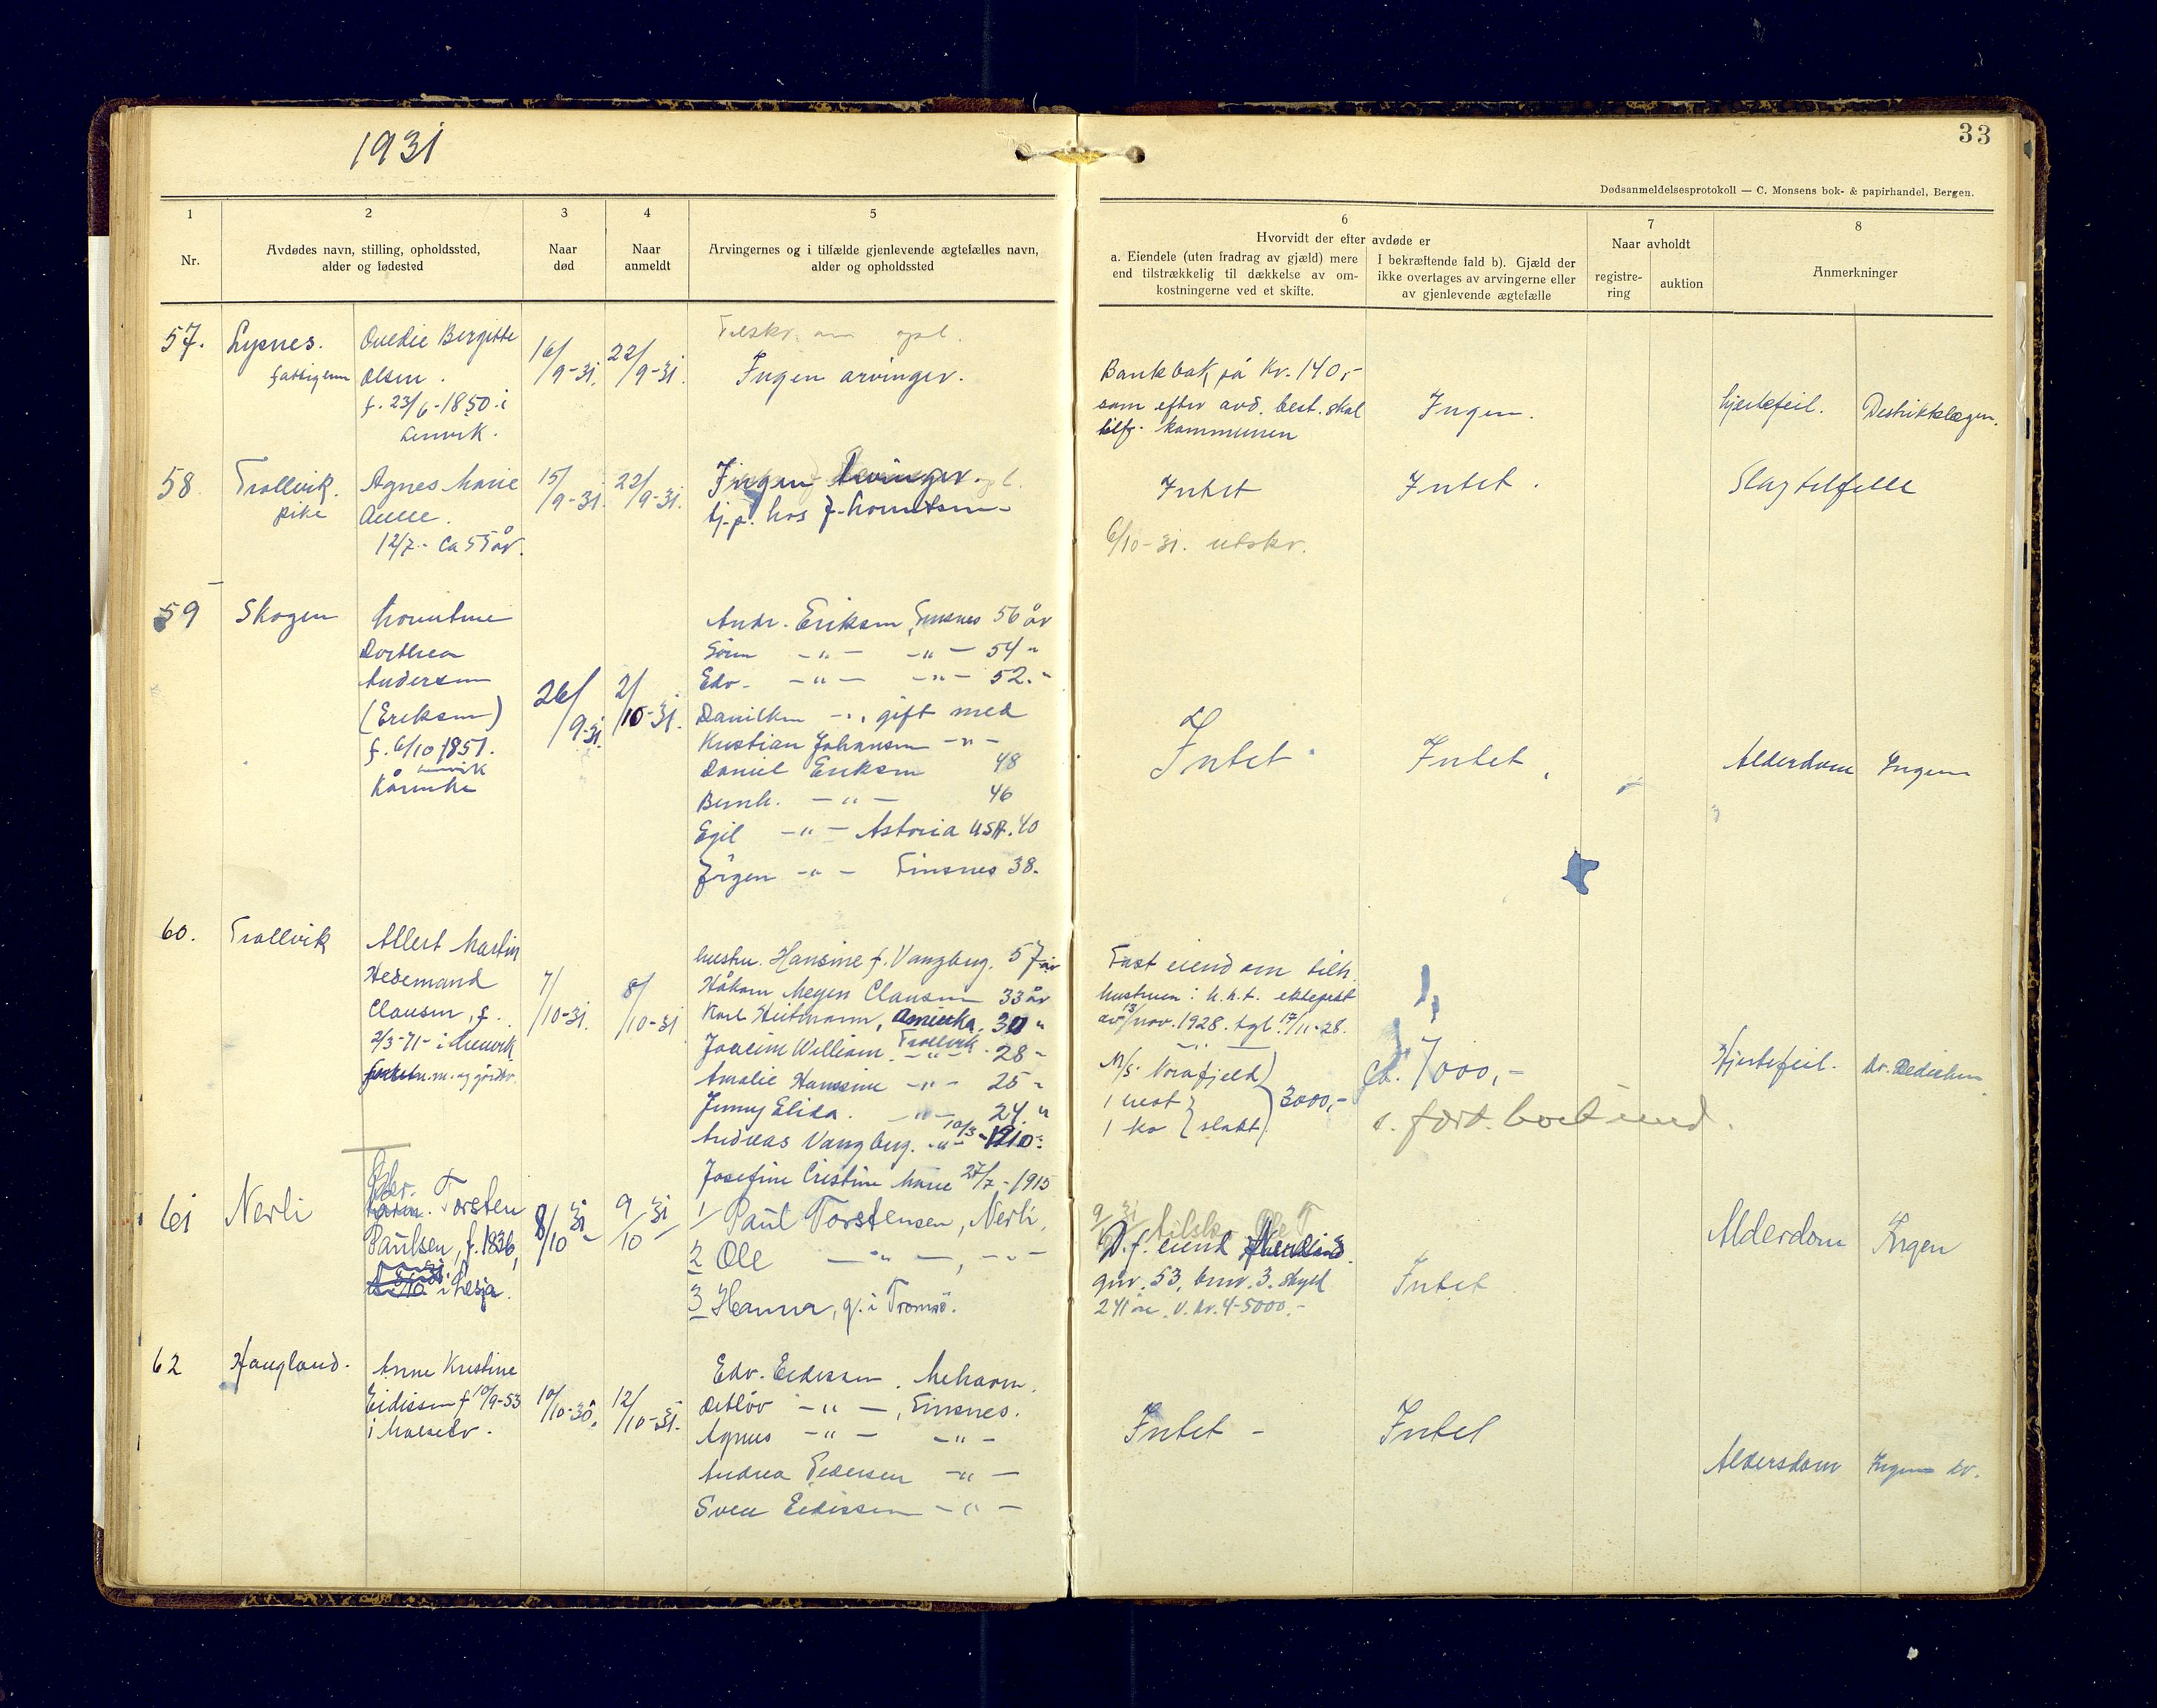 1931
33
Dødsanmeldelsesprotokoll — C. Monsens bok- & papirhandel, Bergen.
1
2
3
4
5
6
7
8
Nr.
Avdødes navn, stilling, opholdssted,
alder og fødested
Naar
død
Naar
anmeldt
Arvingernes og i tilfælde gjenlevende ægtefælles navn,
alder og opholdssted
Hvorvidt der efter avdøde er
a. Eiendele (uten fradrag av gjæld) mere
end tilstrækkelig til dækkelse av om-
kostningerne ved et skifte.
I bekræftende fald b). Gjæld der
ikke overtages av arvingerne eller
av gjenlevende ægtefælle
Naar avholdt
registre-
ring
auktion
Anmerkninger
57.
Lysnes.
Ovedie Bergitte
Olsen.
f. 23/6-1850 i
Lenvik.
16/9-31.
22/9-31.
Ingen arvinger.
Bankbok på Kr. 140,-
som efter avd. best. skal
tilf. kommunen
Ingen.
hjertefeil.
Distriktslægen.
58.
Trollvik.
pike
Agnes Marie
12/7- ca 55 år.
15/9-31.
22/9-31.
Ingen Arvinger.
tj.p. hos
Intet
6/10-31. utskr.
Intet.
Slagtilfelle
59
Skogen
Dorthea
Andersen
(Eriksen)
f. 6/10 1851.
26/9-31.
2/10-31.
Andr. Eriksen, Finsnes 56 år
Sören -"- -"- 54 "
Edv. -"- -"- 52.-
gift med
Kristian Johansen -"-
Daniel Eriksen 48
Bernh. -"- 46
Egil -"- Astoria USA. 40
Jörgen -"- Finsnes 38.
Intet
Intet
Alderdom
Ingen
60.
Trollvik
Allert Martin
Hedemand
Clausen, f.
2/3-71- i Lenvik
7/10-31.
8/10-31
hustru. Hansine f. Vangberg. 57 år
Håkon Meyer Clausen 33 år
Karl Heitmann, Amerika. 30 "
Joacim William. Trollvik 28 -
Amalie Hanssine -"- 25 -
Jenny Elida. -"- 24. "
Andreas Vangberg. -"- 10/3-1910.
Josefine Cristine Marie 27/7-1915
Fast eiendom tilh.
hustruen i h.h.t. ektepakt
av 13/nov. 1928. tgl. 17/11-28.
M/s. Norafjeld
1 hest
1 ko slakt
3000,-
ca. 7000,-
Hjertefeil.
61
Nerli
Torsten
Paulsen, f. 1836,
i Lesja.
8/10 31
9/10 31
1 Paul Torstensen, Nerli,
2 Ole -"-, -"-
3 Hanna, g. i Tromsö.
D.f. eiend
gnr. 53, bnr. 3. skyld
241 øre. V. kr. 4-5000.-
Intet
Alderdom
Ingen
62
Haugland.
Anne Kristine
Eidissen f 10/9-53
i Malselv.
10/10-30.
12/10-31.
Edv. Eidissen. Mehavn.
Detlöv -"-, Finsnes.
Agnus -"- -"-
Andrea Pedersen -"-
Sven Eidissen -"-
Intet -
Intet
Aldersdom
Ingen dr.